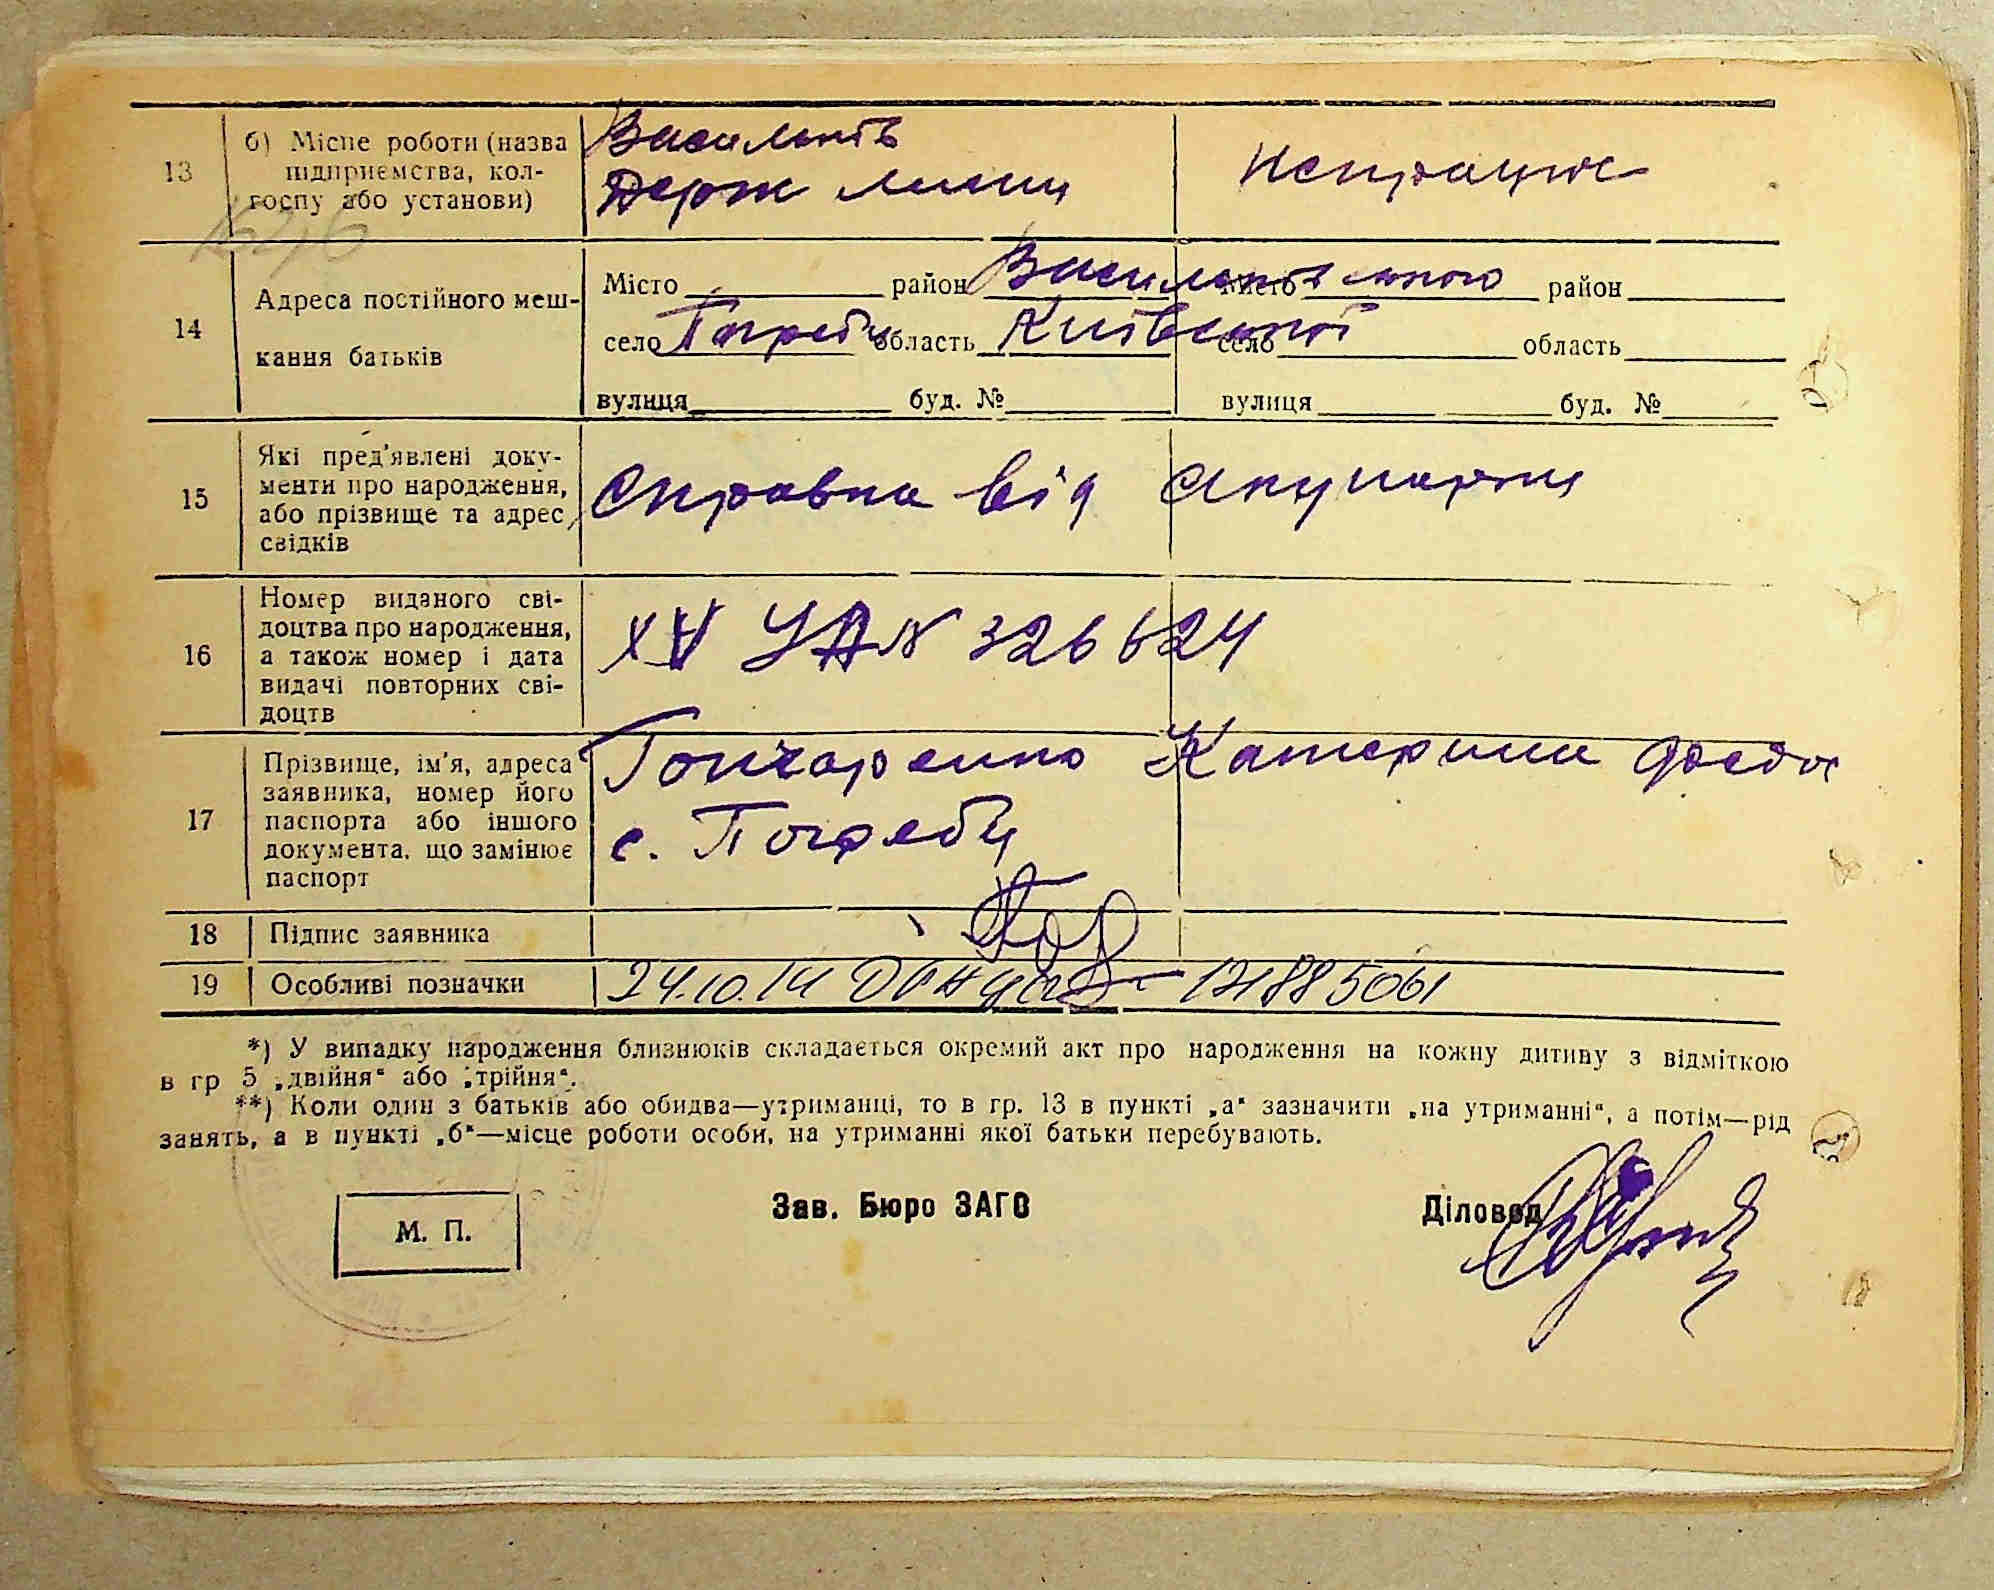 13 б) Місце роботи (назва
підприємства, кол-
госпу або установи)
Васильків
Держ
непрацює
14 Адреса постійного меш-
кання батьків
Місто район Васильківського
село Погреби область Київської
вулиця буд. №
Місто район
село область
вулиця буд. №
15 Які пред'явлені доку-
менти про народження,
або прізвище та адрес
свідків
Справка від Акушерки
16 Номер виданого сві-
доцтва про народження,
а також номер і дата
видачі повторних сві-
доцтв
XV УА N 326624
17 Прізвище, ім'я, адреса
заявника, номер його
паспорта або іншого
документа, що замінює
паспорт
Гончаренко Катерина Федос
с. Погреби
18 Підпис заявника
19 Особливі позначки
24.10.14 121885061
*) У випадку народження близнюків складається окремий акт про народження на кожну дитину з відміткою
в гр 5 „двійня“ або „трійня“.
**) Коли один з батьків або обидва—утриманці, то в гр. 13 в пункті „а“ зазначити „на утриманні“, а потім—рід
занять, а в пункті „б“—місце роботи особи, на утриманні якої батьки перебувають.
М. П.
Зав. Бюро ЗАГС
Діловод